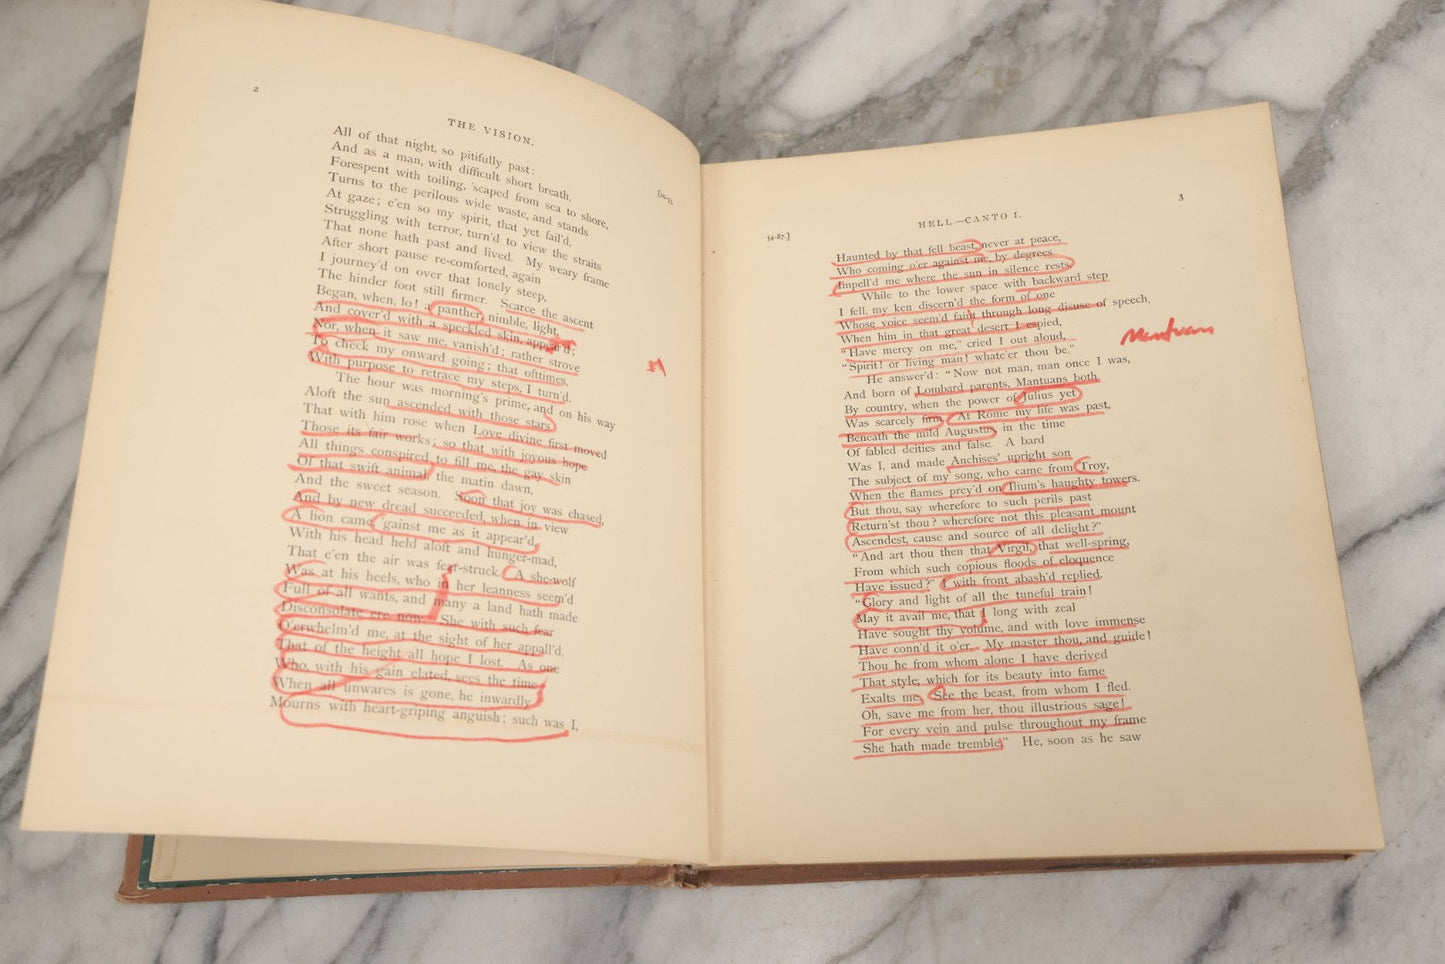 2
THE VISION.
[20-53
All of that night, so pitifully past:
And as a man, with difficult short breath,
Forespent with toiling, 'scaped from sea to shore,
Turns to the perilous wide waste, and stands
At gaze; e'en so my spirit, that yet fail'd,
Struggling with terror, turn'd to view the straits
That none hath past and lived. My weary frame
After short pause re-comforted, again
I journey'd on over that lonely steep,
The hinder foot still firmer. Scarce the ascent
Began, when, lo! a panther, nimble, light,
And cover'd with a speckled skin, appear'd;
Nor, when it saw me, vanish'd; rather strove
To check my onward going; that ofttimes,
With purpose to retrace my steps, I turn'd.
The hour was morning's prime, and on his way
Aloft the sun ascended with those stars,
That with him rose when Love divine first moved
Those its fair works; so that with joyous hope
All things conspired to fill me, the gay skin
Of that swift animal, the matin dawn,
And the sweet season. Soon that joy was chased,
And by new dread succeeded, when in view
A lion came, 'gainst me as it appear'd,
With his head held aloft and hunger-mad,
That e'en the air was fear-struck. A she-wolf
Was at his heels, who in her leanness seem'd
Full of all wants, and many a land hath made
Disconsolate ere now. She with such fear
O'erwhelm'd me, at the sight of her appall'd,
That of the height all hope I lost. As one
Who, with his gain elated, sees the time
When all unwares is gone, he inwardly
Mourns with heart-griping anguish; such was I,
54-87.]
HELL.—CANTO I.
3
Haunted by that fell beast, never at peace,
Who coming o'er against me, by degrees
Impell'd me where the sun in silence rests.
While to the lower space with backward step
I fell, my ken discern'd the form of one
Whose voice seem'd faint through long disuse of speech.
When him in that great desert I espied,
"Have mercy on me," cried I out aloud,
"Spirit! or living man! whate'er thou be."
He answer'd: "Now not man, man once I was,
And born of Lombard parents, Mantuans both
By country, when the power of Julius yet
Was scarcely firm. At Rome my life was past,
Beneath the mild Augustus, in the time
Of fabled deities and false. A bard
Was I, and made Anchises' upright son
The subject of my song, who came from Troy,
When the flames prey'd on Ilium's haughty towers.
But thou, say wherefore to such perils past
Return'st thou? wherefore not this pleasant mount
Ascendest, cause and source of all delight?"
"And art thou then that Virgil, that well-spring,
From which such copious floods of eloquence
Have issued?" I with front abash'd replied.
"Glory and light of all the tuneful train!
May it avail me, that I long with zeal
Have sought thy volume, and with love immense
Have conn'd it o'er. My master thou, and guide!
Thou he from whom alone I have derived
That style, which for its beauty into fame
Exalts me. See the beast, from whom I fled.
Oh, save me from her, thou illustrious sage!
For every vein and pulse throughout my frame
She hath made tremble." He, soon as he saw
Mantuans